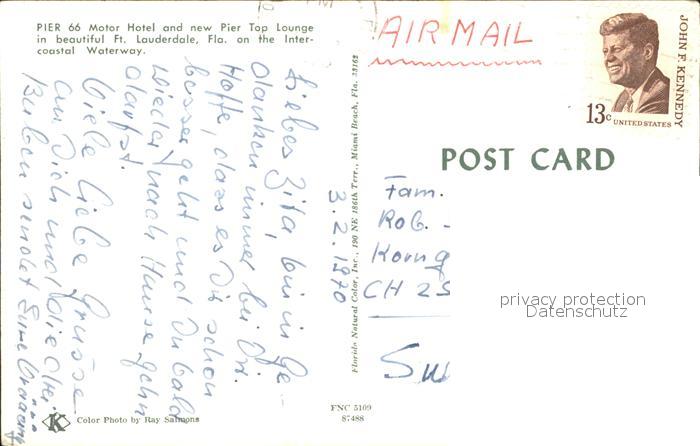 PIER 66 Motor Hotel and new Pier Top Lounge
in beautiful Ft. Lauderdale, Fla. on the Inter-
coastal Waterway.
Liebes Zita, bin in Ge-
danken immer bei Dir.
Hoffe, dass es Dir schon
besser geht und Du bald
wieder nach Hause gehn
darfst.
Viele liebe Grüsse
an Dich und die drei
Buben sendet Eure
3.2.1970
Florida Natural Color, Inc., 190 NE 186th Terr., Miami Beach, Fla. 33162
AIR MAIL
JOHN F. KENNEDY
13c UNITED STATES
POST CARD
Fam.
Rob. -
Korng
CH 25
privacy protection
Datenschutz
K Color Photo by Ray Salmons
FNC 5109
87488